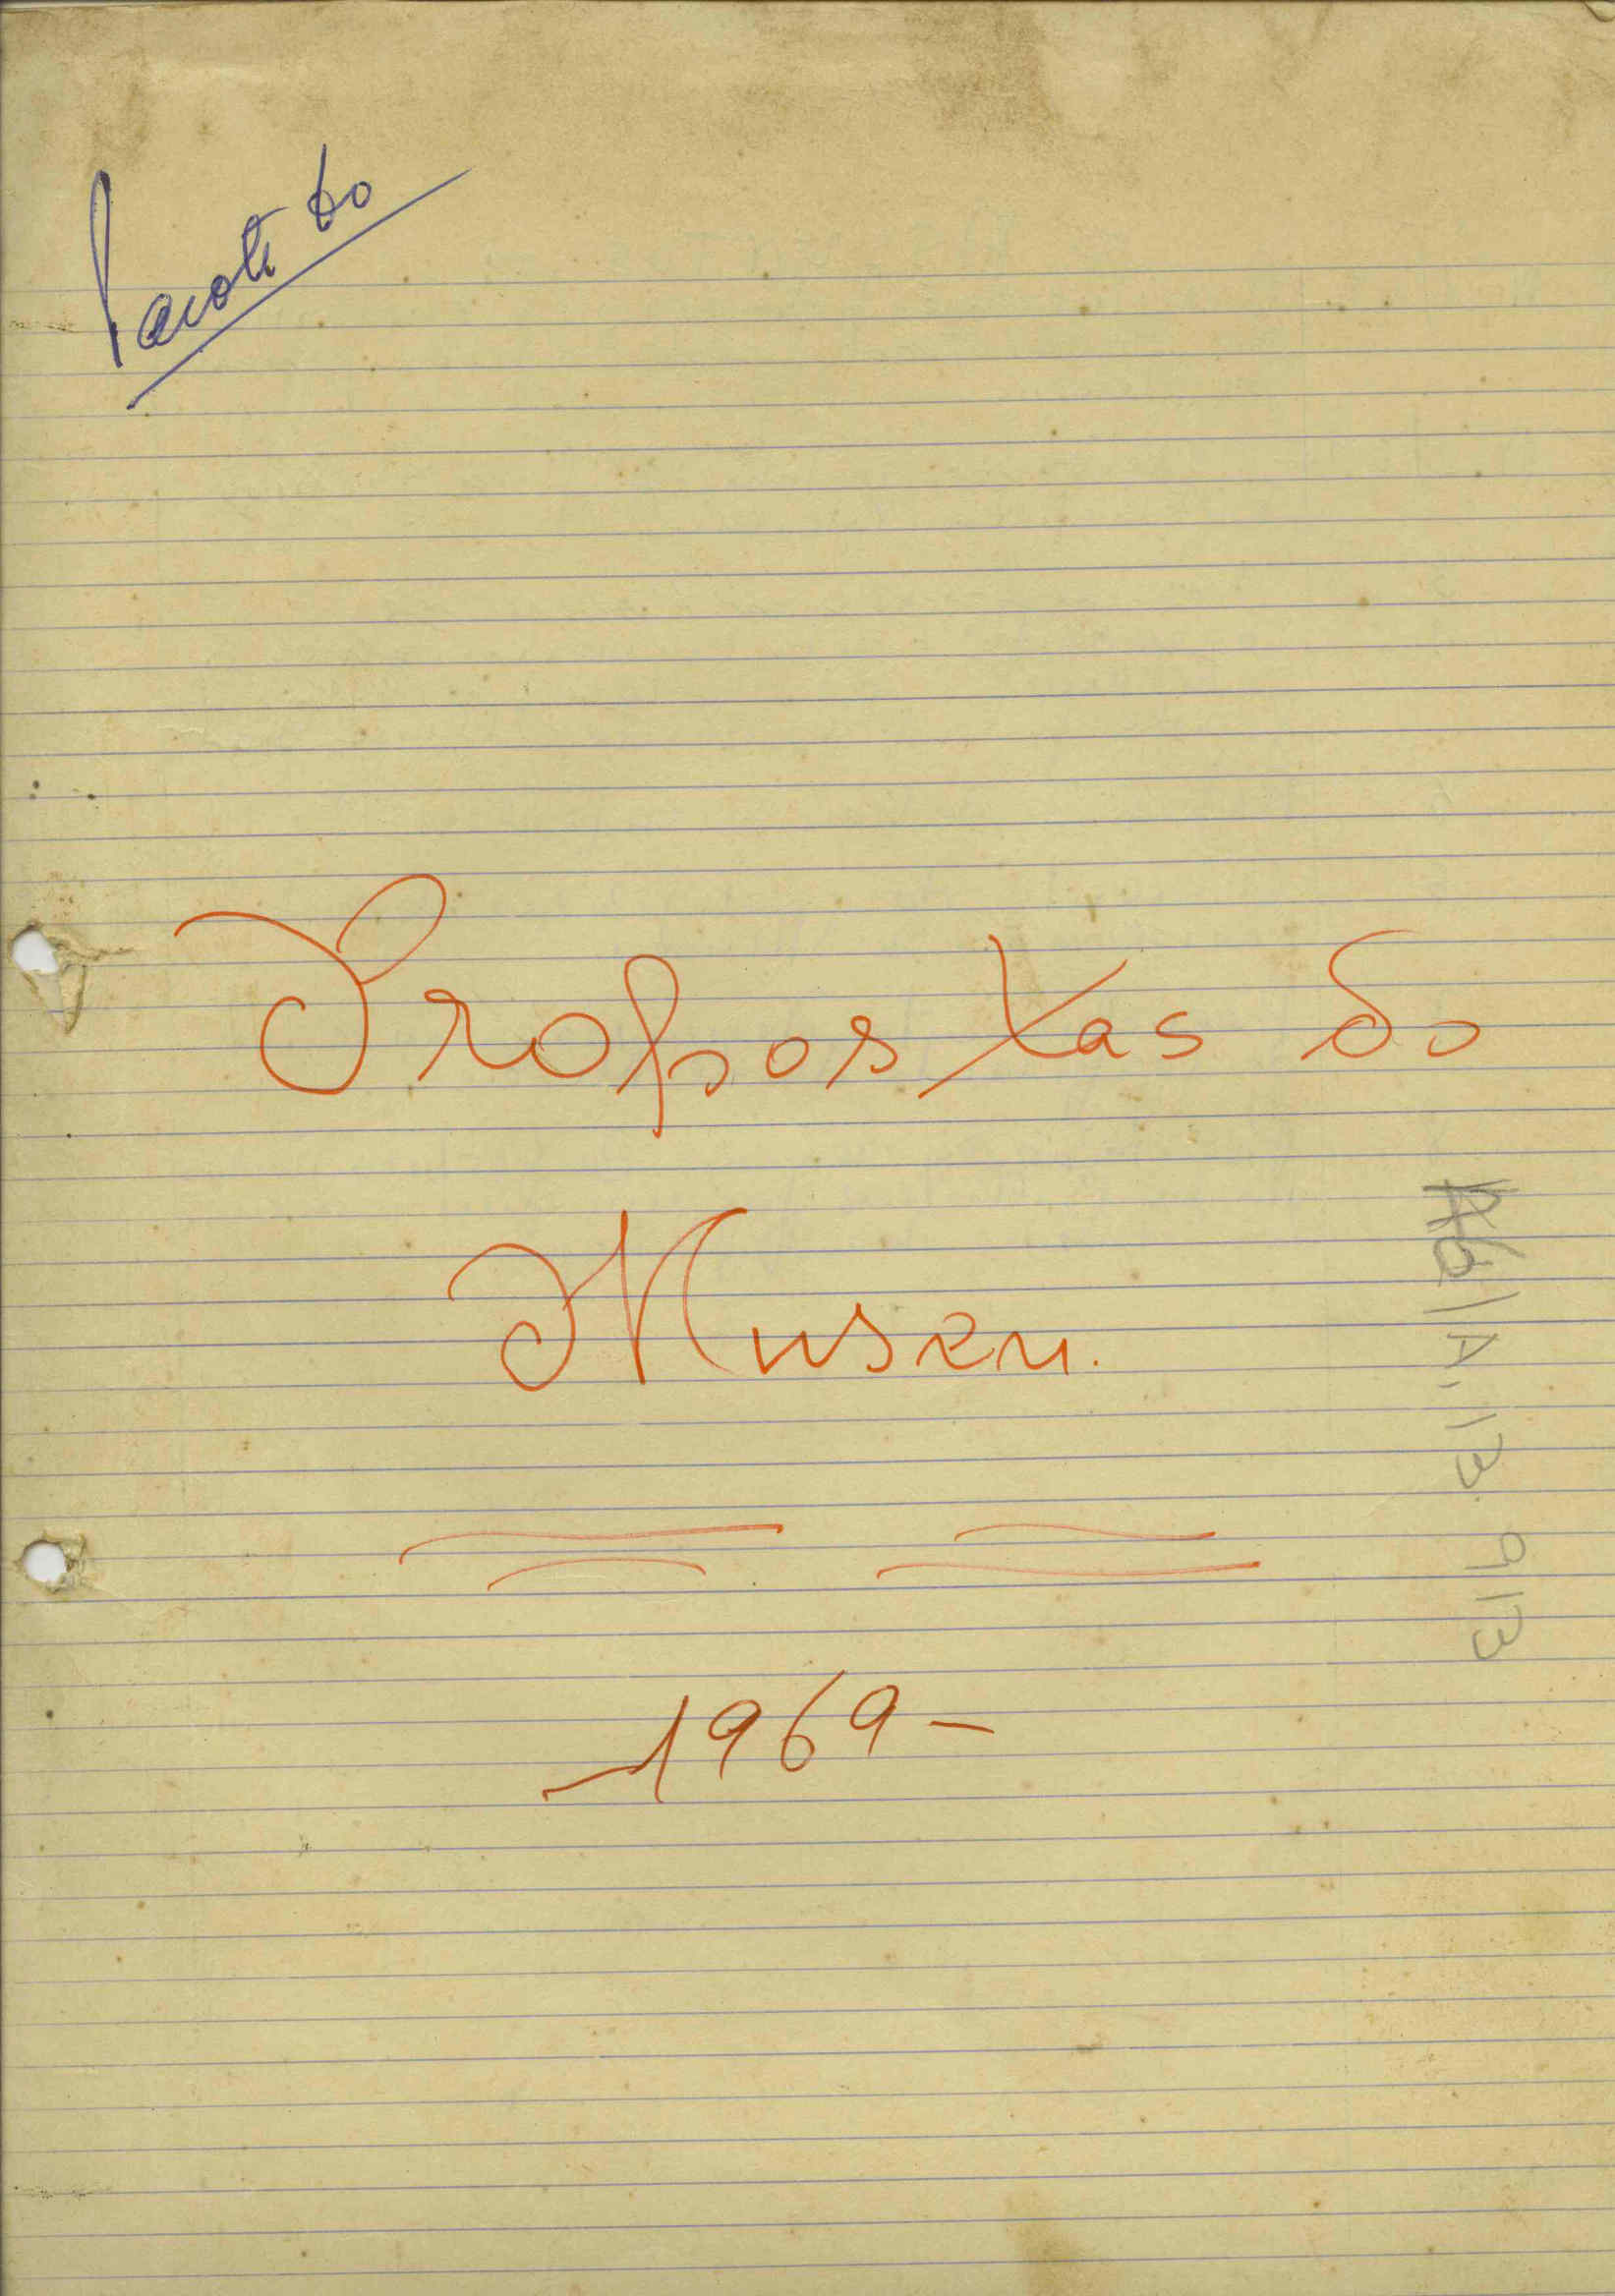 Pacote 60
Propostas do
Museu.
1969-
/A.13.913